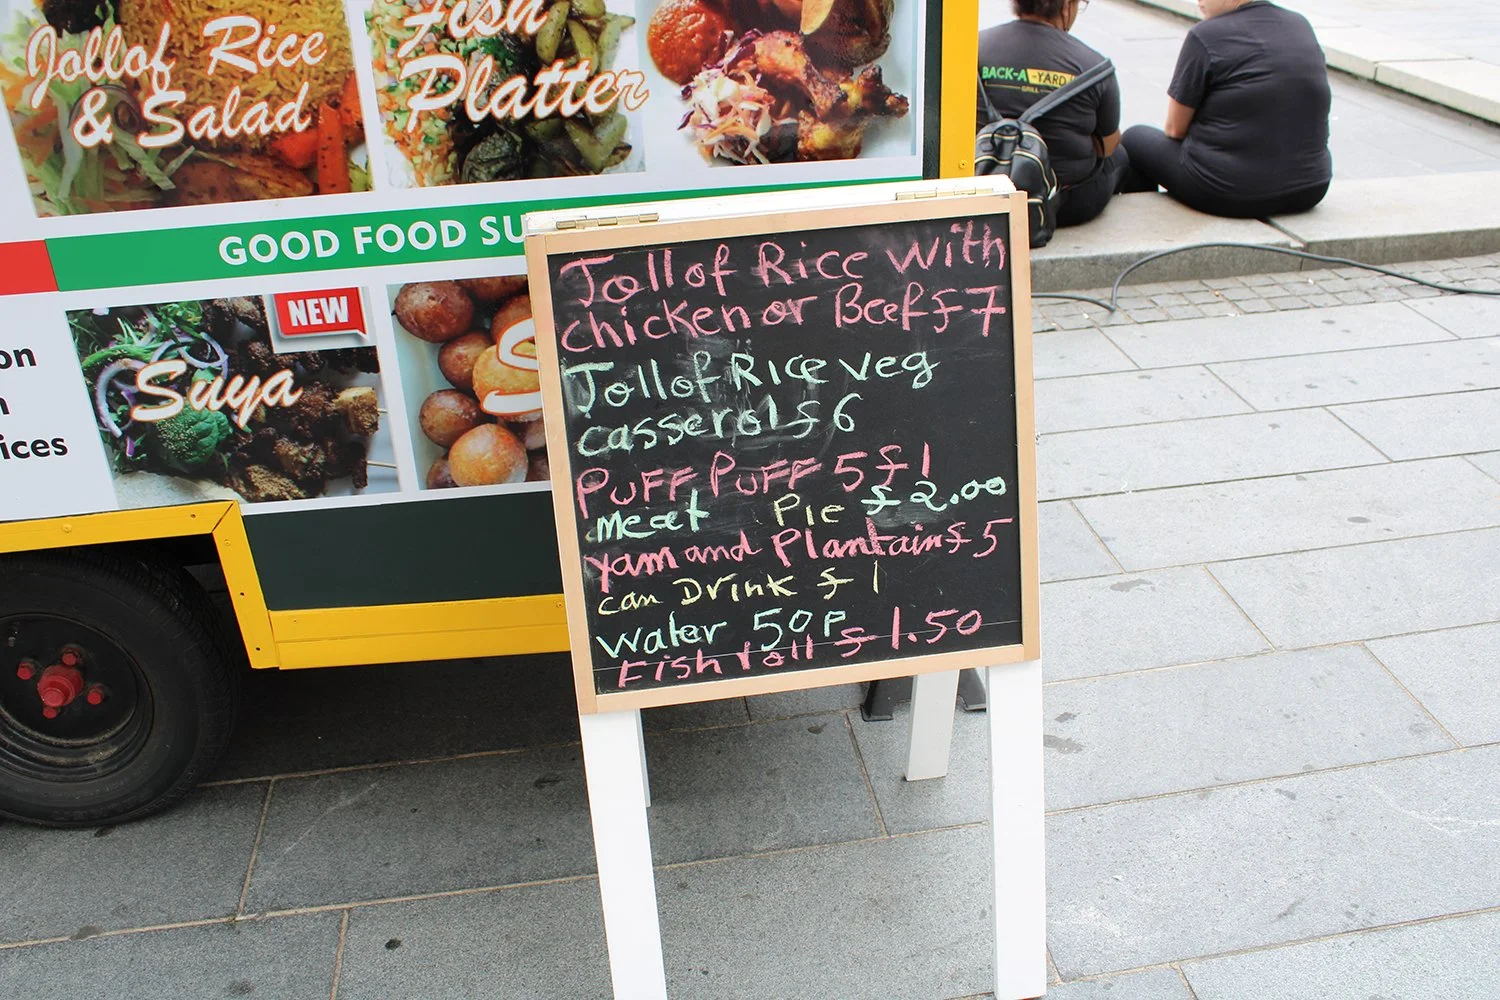 Jollof Rice
& Salad
Fish
Platter
GOOD FOOD
NEW
Suya
ices
BACK-A-YARD
GRILL
Jollof Rice with
chicken or Beef £7
Jollof Rice veg
casserol £6
PUFF PUFF 5 £1
meat Pie £2.00
Yam and Plantain £5
can Drink £1
Water 50p
Fish roll £1.50